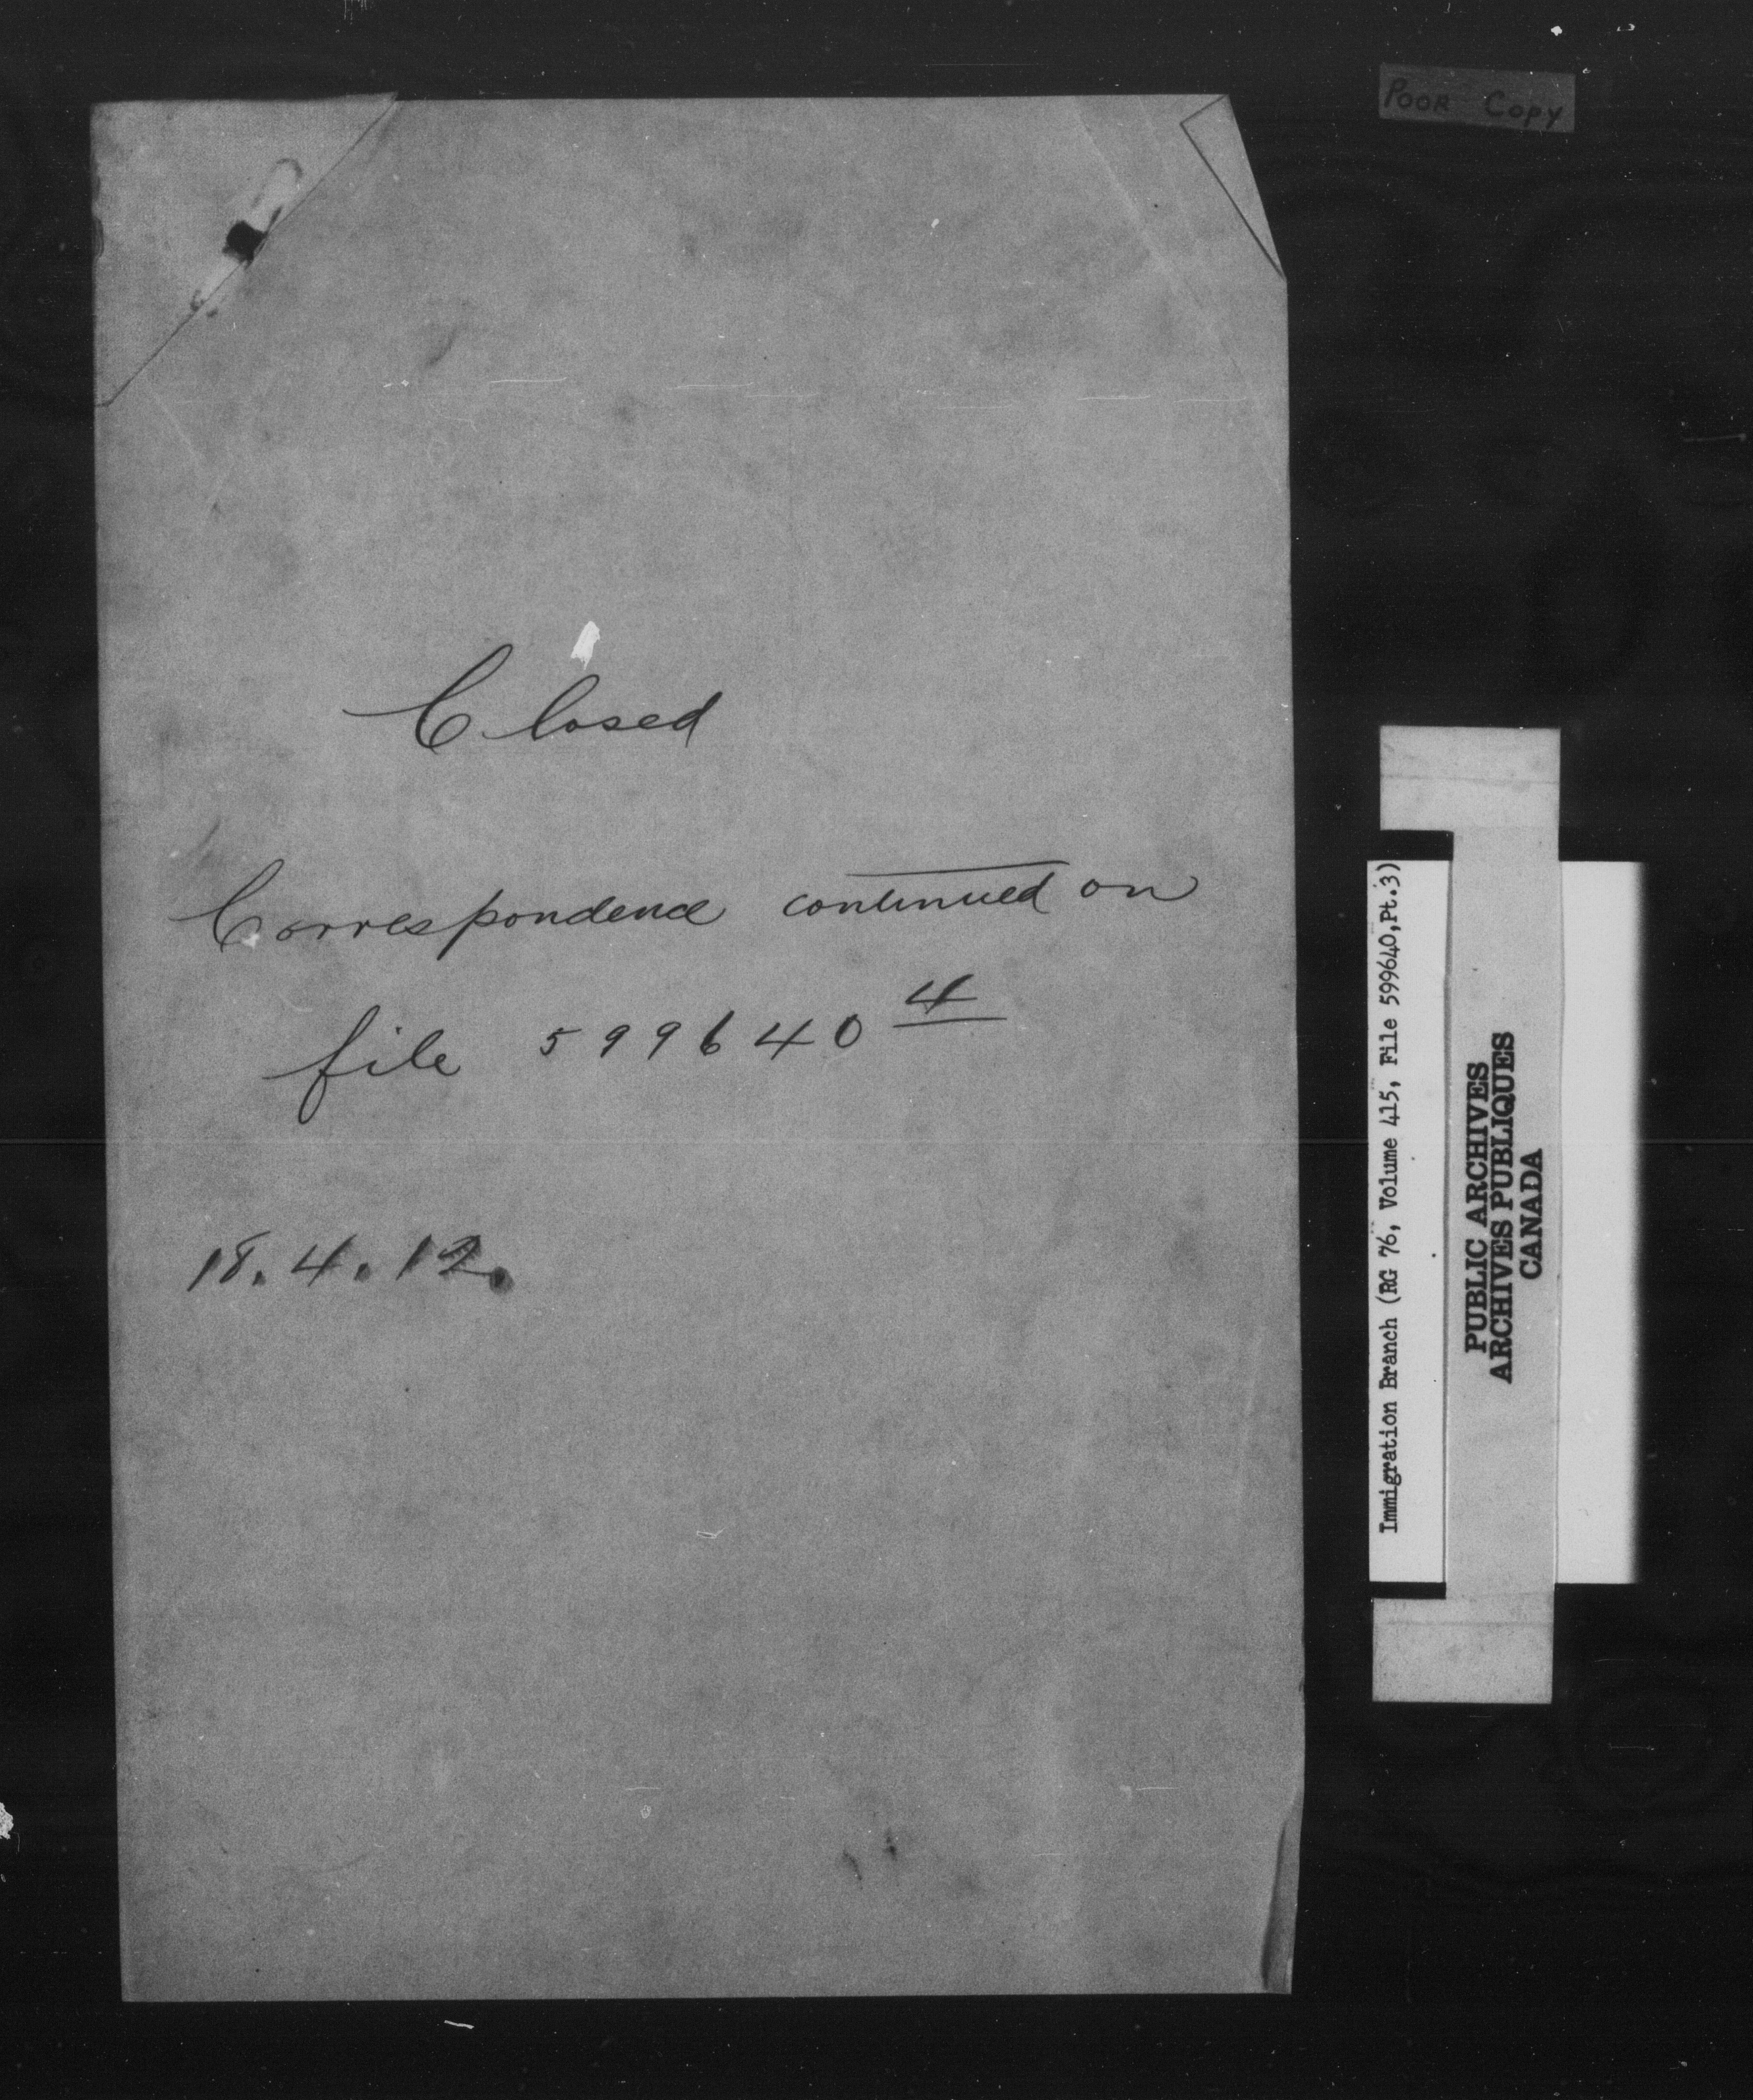 POOR COPY
Closed
Correspondence continued on
file 599640 4
18.4.12.
Immigration Branch (RG 76, Volume 415, File 599640,Pt.3)
PUBLIC ARCHIVES
ARCHIVES PUBLIQUES
CANADA